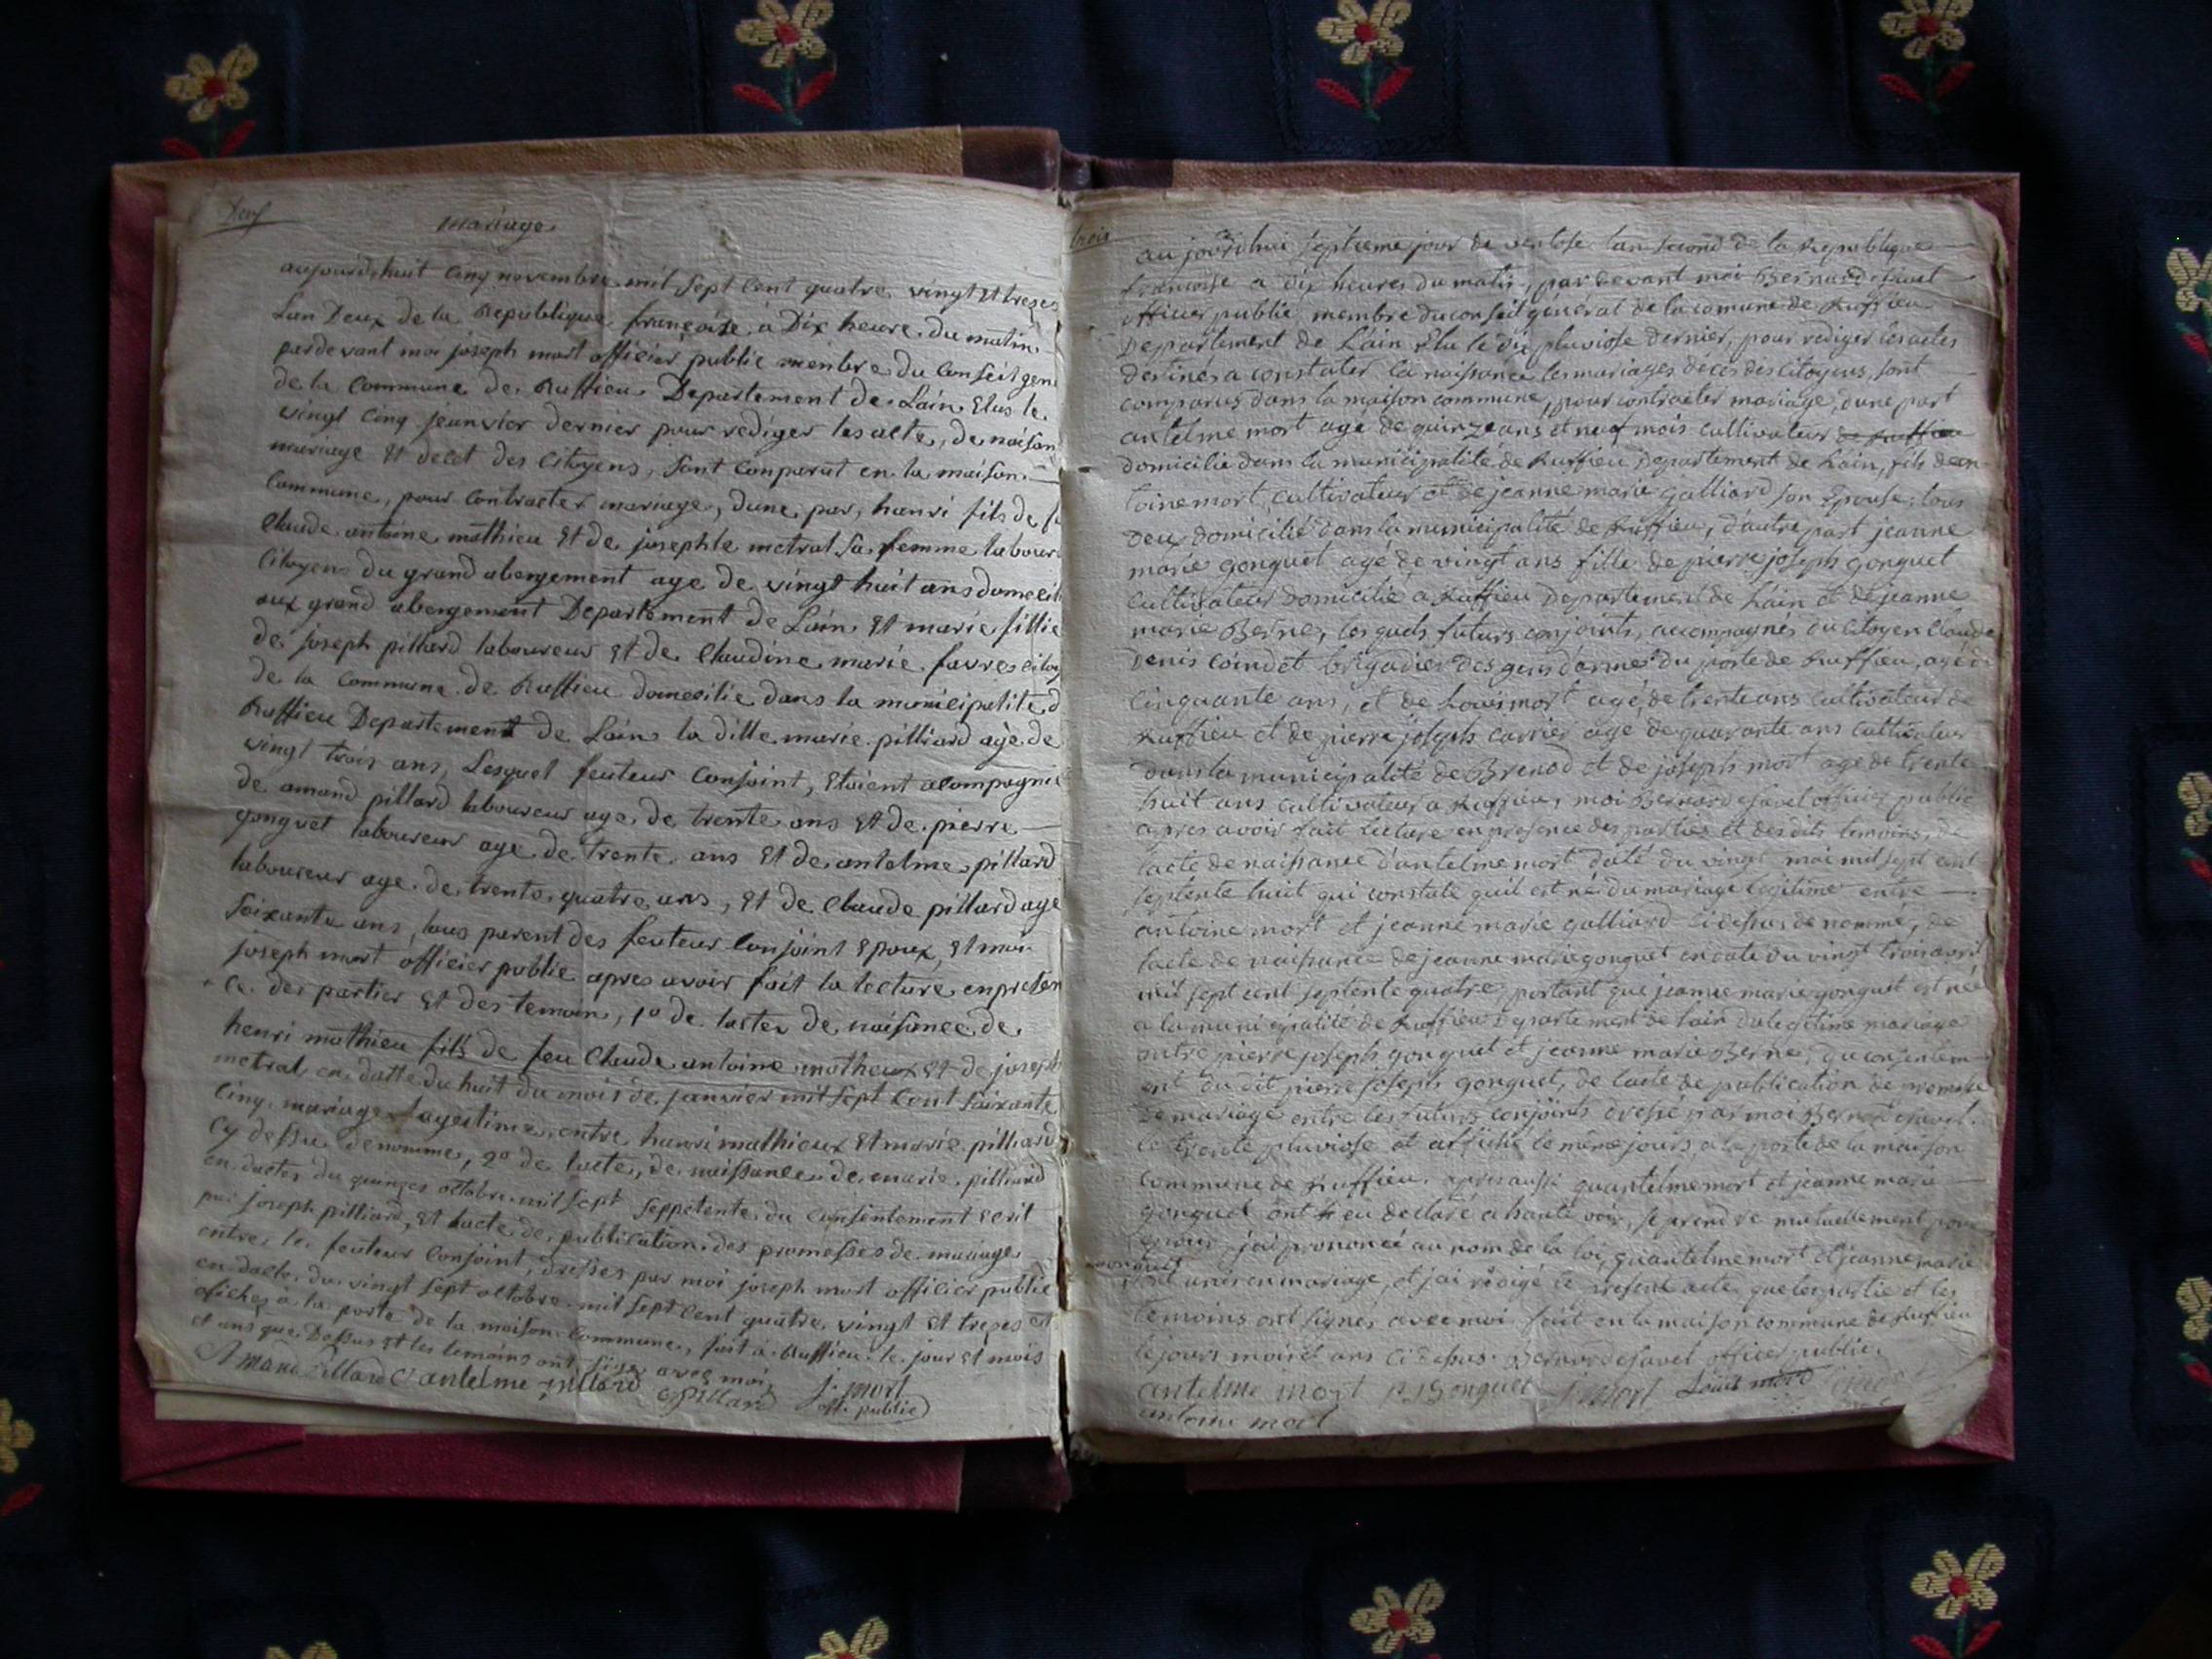 Deux
mariage
aujourdhuit cinq novembre mil sept cent quatre vingt et treze
Lan Deux de la Republique françoise a Dix heure du matin
pardevant moi joseph mort officier public membre du Conseil gene
de la Commune de Ruffieu Departement de Lain Elus le
vingt cinq jeanvier dernier pour rediger les acte, de naisan
mariage et decet des Citoyens, sont Conparut en la maison
Commune, pour Contracter mariage, dune par, hanri fils de
Claude antoine mathieu et de josephte metral sa femme labour
Citoyens du grand abergement age de vingt huit ans domecili
aux grand abergement Departement de Lain et marie fillie
de joseph pillard laboureur et de Claudine marie favre citoy
de la Commune de Ruffieu domecilie dans la municipalite d
Ruffieu Departement de Lain la ditte marie pilliard agé de
vingt trois ans, Lesquel feuteur Conjoint, Etoient acompagnie
de amand pillard laboureur age de trente ans et de pierre
gonguet laboureur age de trente ans et de antelme pillard
laboureur age de trente quatre ans, et de Claude pillard age
soixante ans, tous parent des feuteur Conjoint Epoux, et moi
joseph mort officier public apres avoir fait la lecture en presen
ce des partier et des temoin, 1o de lactes de naisance de
henri mathieu fils de feu Claude antoine matheux et de joseph
metral en datte du huit du mois de janvier mil sept Cent soixante
Cinq mariage lagestime entre hanri mathieux et marie pilliard
Cy dessu denomme, 2o de lacte, de naissance de marie pilliard
en dactes du quinzes octobre mil sept seppetente du Consentement Ecrit
par joseph pilliard, et lacte de publication des promesses de mariage
entre le feuteur Conjoint, dresses par moi joseph mort officier public
en dacte du vingt sept octobre mil sept Cent quatre vingt et trezes et
afiches à la porte de la maison Commune, fait à Ruffieu le jour et mois
et ans que Dessus et les temoins ont signe avec moi
Amand Pillard antelme pillard Pillard j. mort
off. public
trois
aujourdhui septieme jour de ventose lan second de la Republique
francoise a dix heures du matin, par devant moi Bernard
officier public membre du conseil général de la comune de Ruffieu
Departement de Lain Elu le dix pluviosse dernier, pour rediger les actes
destinés a constater la naissance les mariages décès des citoyens, sont
comparus dans la maison commune, pour contracter mariage, dune part
antelme mort agé de quinze ans et neuf mois cultivateur de Ruffieu
domicilié dans la municipalité de Ruffieu Departement de Lain, fils dean
toine mort cultivateur et de jeanne marie galliard son Epouse, tous
deux domicilié dans la municipalité de Ruffieu, d'autre part jeanne
marie gonguet agé de vingt ans fille de pierre joseph gonguet
cultivateur domicilié a Ruffieu Departement de Lain et de jeanne
marie Berne, les quels futurs conjoints, accompagnés du citoyen Claude
Denis Coindet brigadier des gens darmes du poste de Ruffieu, agé de
cinquante ans, et de Louis mort agé de trente ans cultivateur de
Ruffieu et de pierre joseph carrier agé de quarante ans cultivateur
dans la municipalité de Brenod et de joseph mort agé de trente
huit ans cultivateur a Ruffieu, moi Bernard officier public
apres avoir fait lecture en presence des parties et des dits temoins, de
lacte de naissance d'antelme mort daté du vingt mai mil sept cent
septente huit qui constate quil est né du mariage legitime entre
antoine mort et jeanne marie galliard ci dessus de nommé, de
lacte de naissance de jeanne marie gonguet en date du vingt trois avril
mil sept cent septente quatre, portant que jeanne marie gonguet est née
a la municipalité de Ruffieu Departement de lain du legitime mariage
entre pierre joseph gonguet et jeanne marie Berne, du consentem
ent du dit pierre joseph gonguet, de lacte de publication de promesse
de mariage entre les futurs conjoints dressé par moi Bernard
le trente pluviose et affiché le même jours, a la porte de la maison
commune de Ruffieu. apres aussi quantelme mort et jeanne marie
gonguet ont eu declaré a haute voix, se prendre mutuellement pour
Epoux, jai prononcé au nom de la loi, quantelme mort et jeanne marie
gonguet
sont unis en mariage, et jai rédigé le present acte que les partie et les
temoins ont signés avec moi fait en la maison commune de Ruffieu
le jours mois et ans ci dessus. Bernard officier public.
antelme mort gonguet j. mort Louis mort
antoine mort